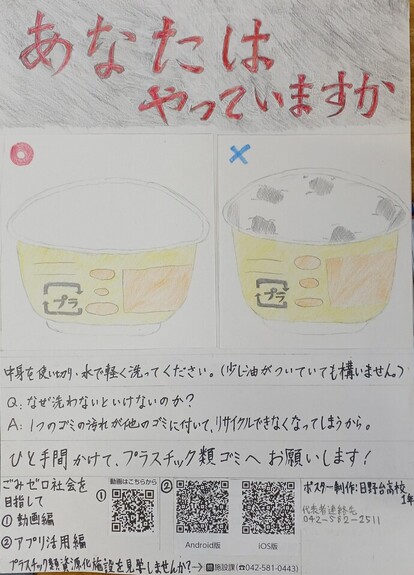 あなたは
やっていますか
プラ
プラ
中身を使い切り、水で軽く洗ってください。(少し油がついていても構いません。)
Q: なぜ洗わないといけないのか?
A: 1つのゴミの汚れが他のゴミに付いて、リサイクルできなくなってしまうから。
ひと手間かけて、プラスチック類ゴミへお願いします!
ごみゼロ社会を
目指して
① 動画編
② アプリ活用編
① 動画はこちらから
②
Android版
iOS版
ポスター制作:日野台高校
1年
代表者連絡先
042-582-2511
プラスチック類資源化施設を見学しませんか?→施設課(☎042-581-0443)